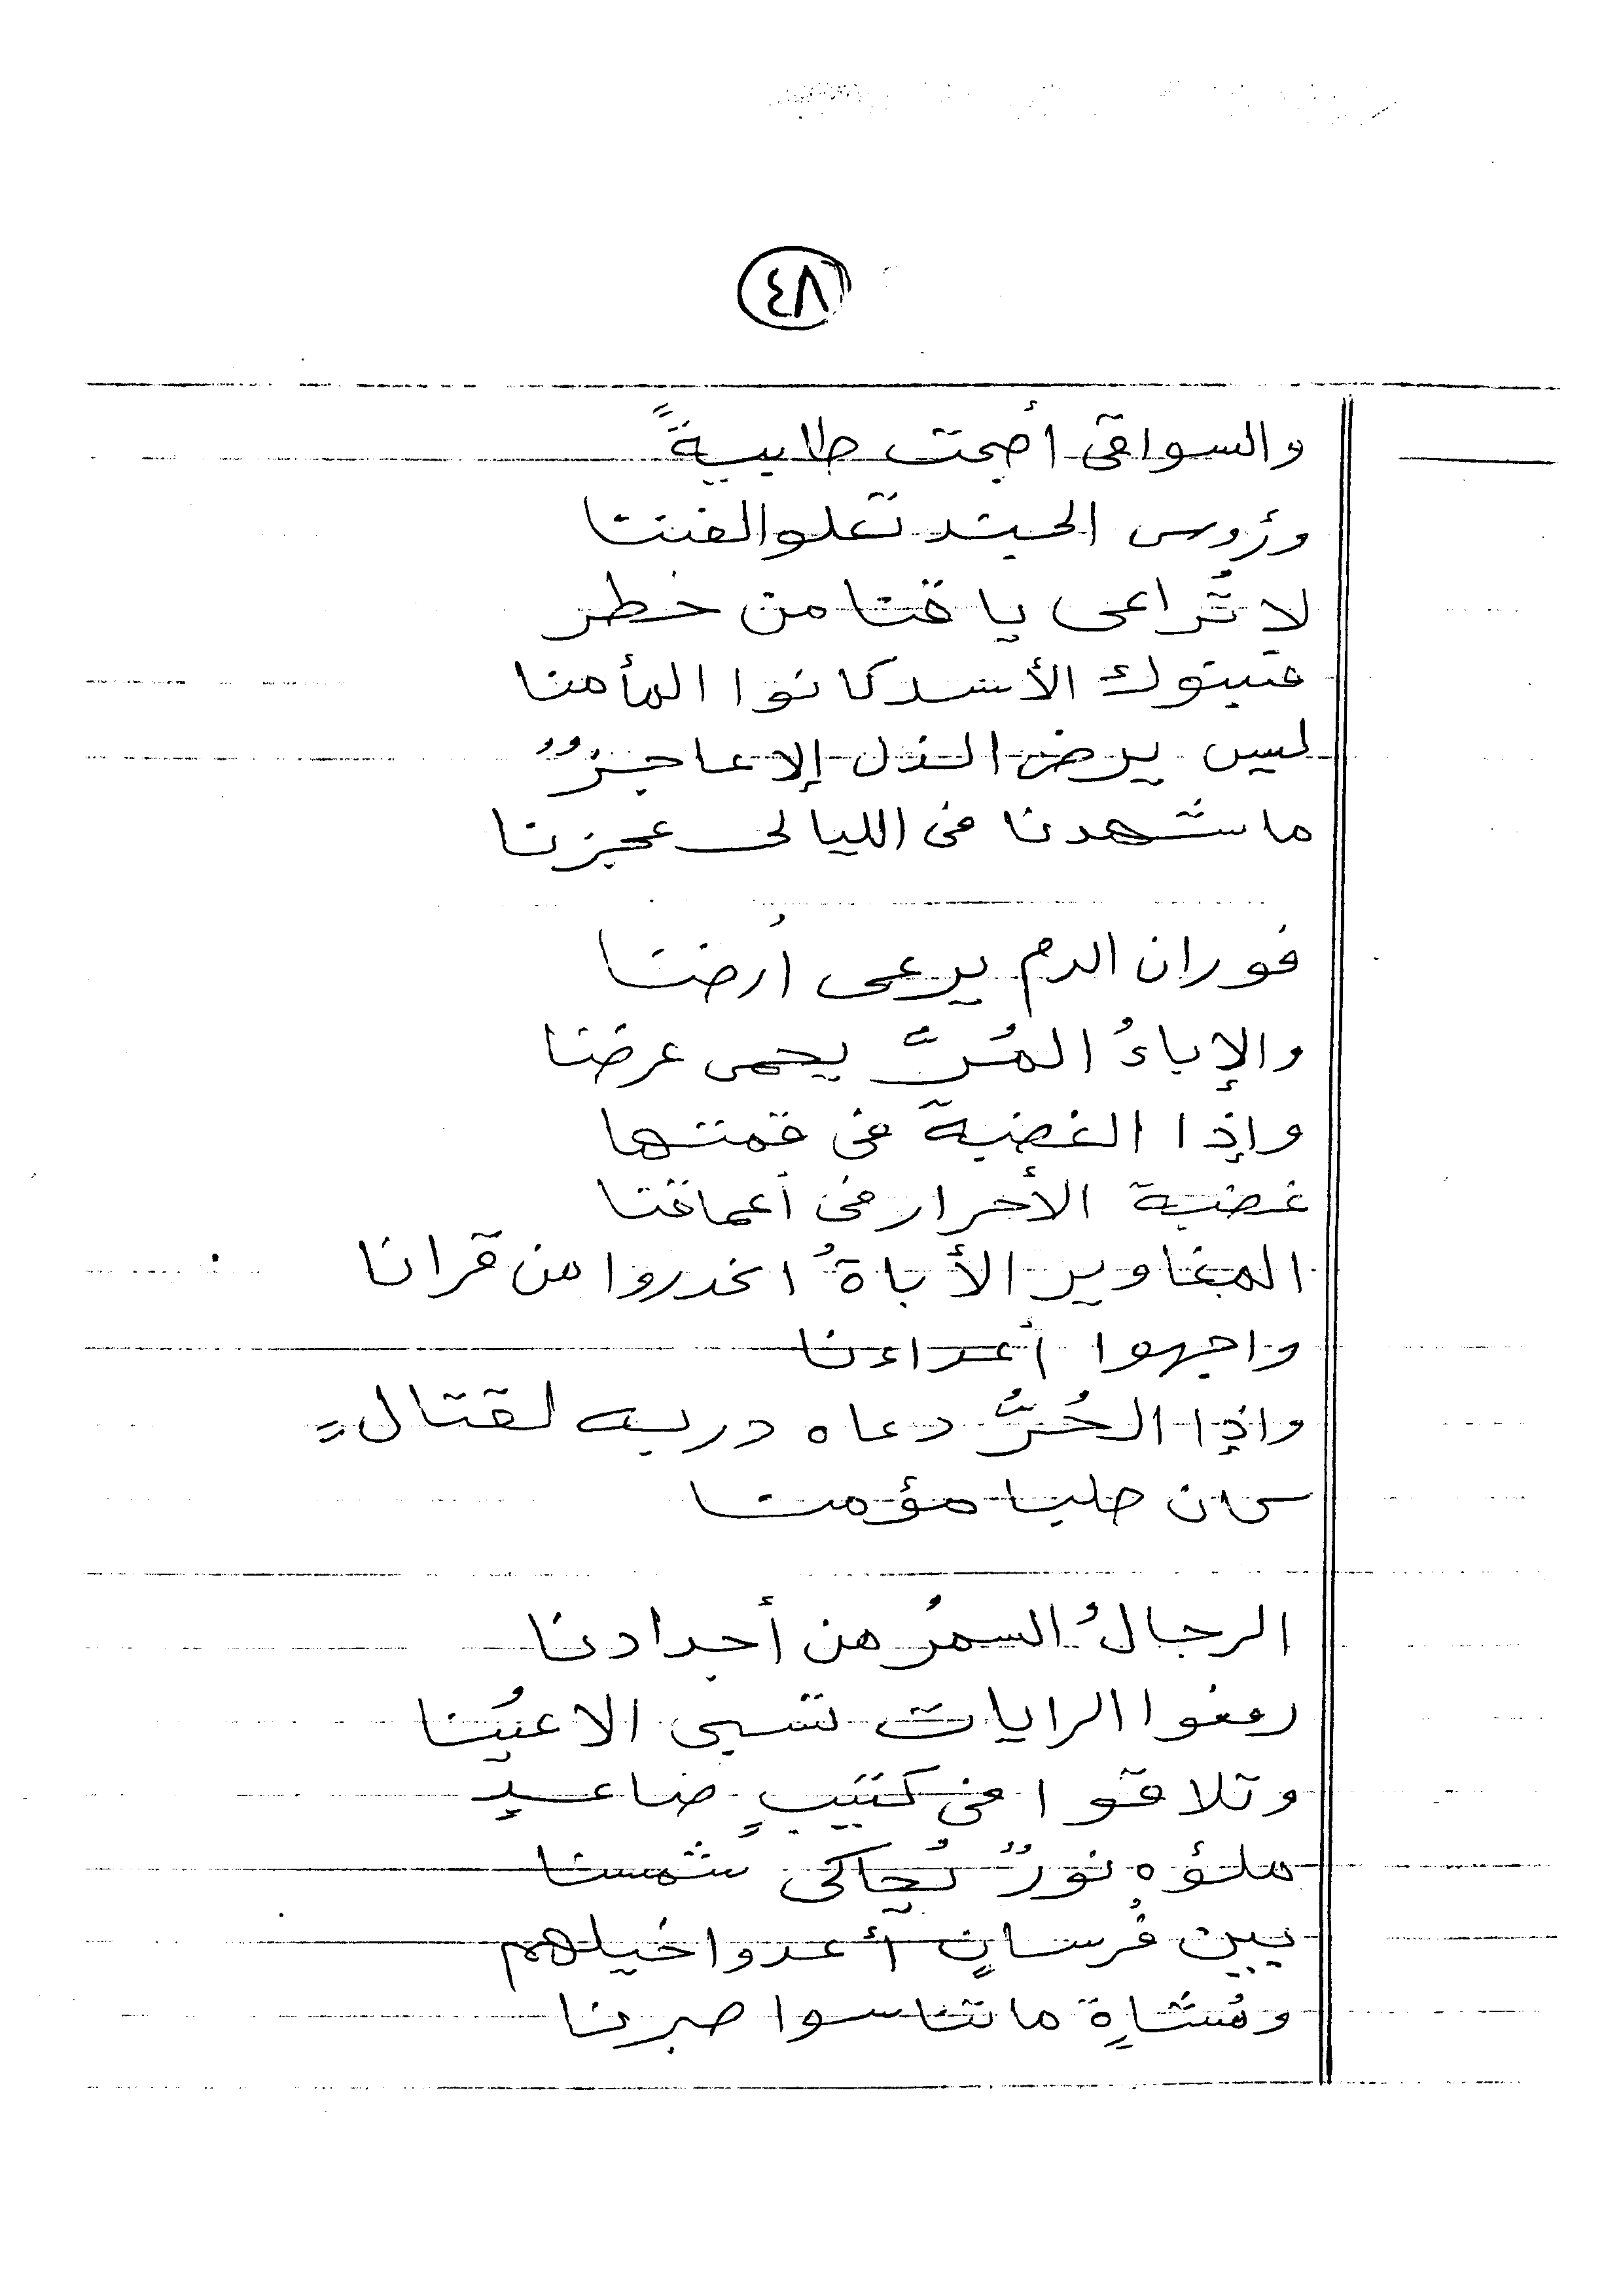 ٤٨
والسواقى أضحت طلايبةً
ورؤوس الجند تعلو الفننا
لا تُراعى يا قنا من خطر
فبنوك الأسد كانوا المأمنا
ليس يرض الذل إلا عاجزٌ
ما شهدنا فى الليالى عجزنا
فوران الدم يرعى أرضنا
والإباءُ المُرَّ يحمى عرضنا
وإذا الغضبة فى قمتها
غضبة الأحرار فى أعماقنا
المغاوير الأباةُ انحدروا من قرانا
واجهوا أعداءنا
وإذا الحُرُّ دعاه دربه لقتالٍ
كان صلبا مؤمنا
الرجالُ السمرُ من أجدادنا
رفعوا الرايات تسبى الاعيُنا
وتلاقوا فى كثيبٍ صاعدٍ
ملؤه نورٌ يُحاكى شمسنا
بين فُرسانٍ أعدوا خيلهم
ومُشاةٍ ما تناسوا صبرنا